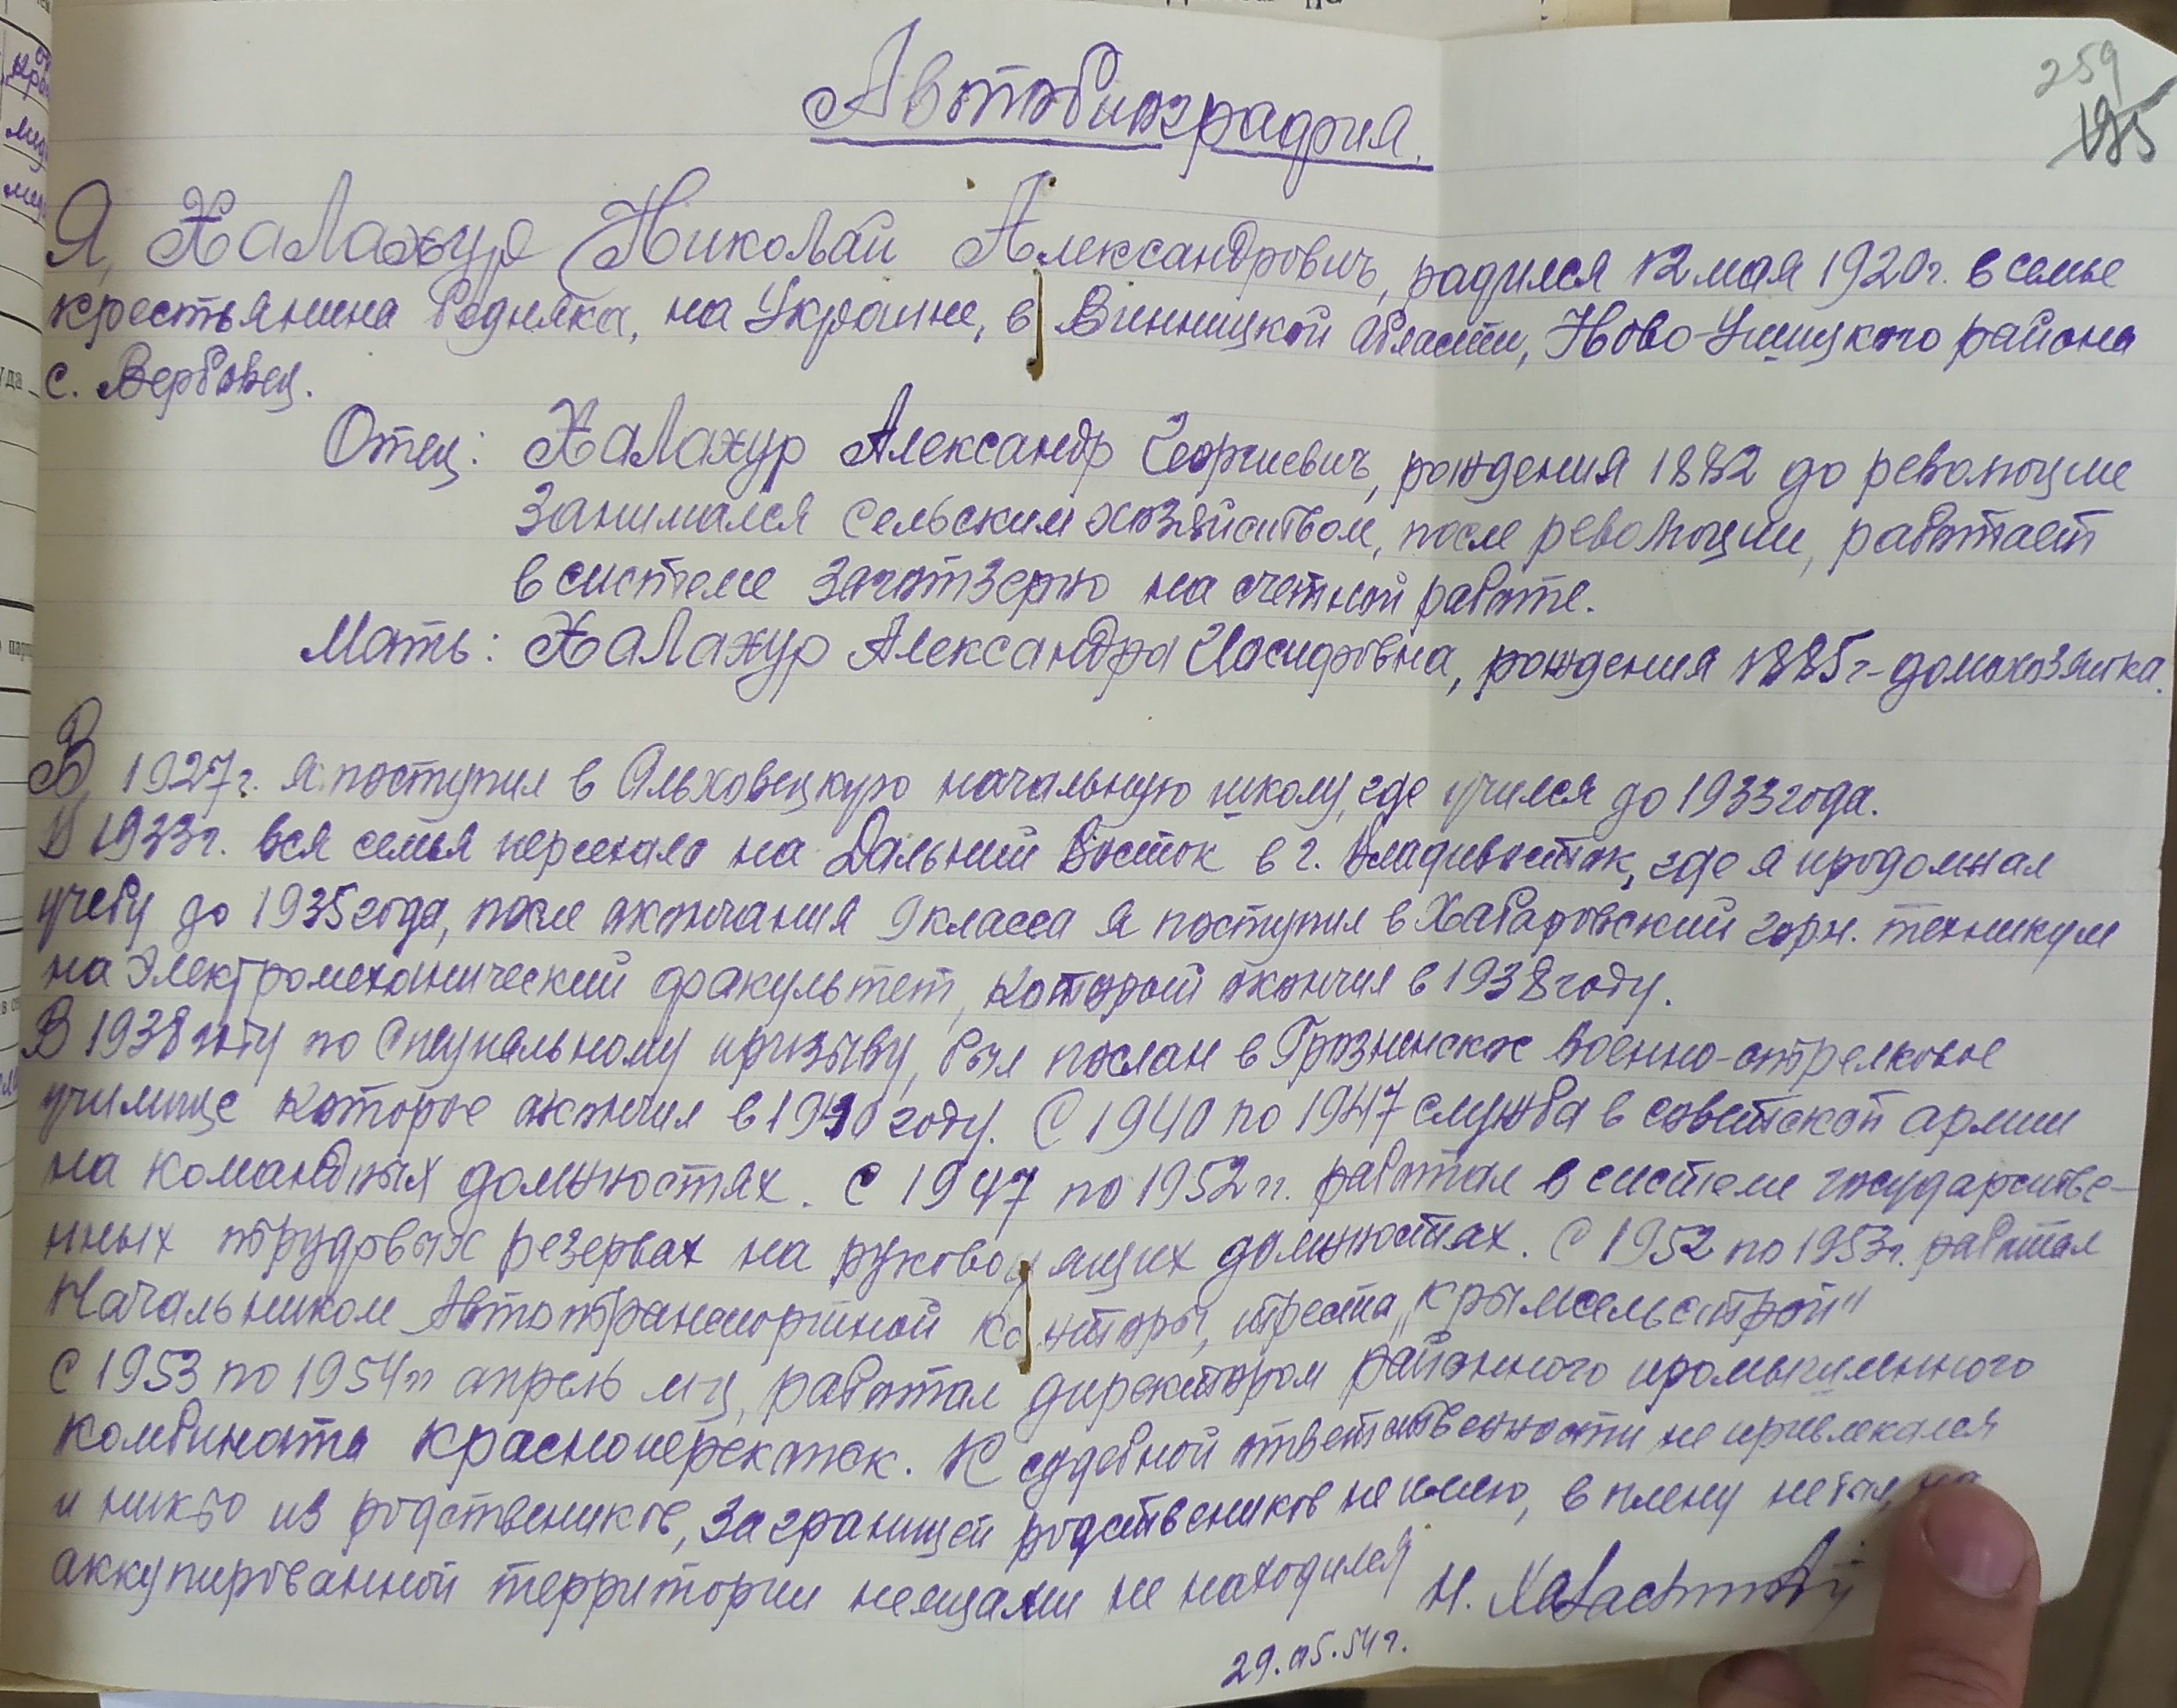 259
195
Автобиография.
Я, Халахур Николай Александрович, радился 12 мая 1920г. в семье
крестьянина бедняка, на Украине, в Винницкой области, Ново-Ушицкого района
с. Вербовец.
Отец: Халахур Александр Георгиевич, рождения 1882 до революции
занимался сельским хозяйством, после революции, работает
в системе Заготзерно на счетной работе.
Мать: Халахур Александра Иосифовна, рождения 1885г-домохозяйка.
В 1927г. я поступил в Ольховецкую начальную школу, где учился до 1933 года.
В 1933г. вся семья переехала на Дальний Восток в г. Владивосток, где я продолжал
учебу до 1935 года, после окончания 9 класса я поступил в Хабаровский горн. техникум
на электромеханический факультет, который окончил в 1938 году.
В 1938 году по специальному призыву, был послан в Грозненское военно-стрелковое
училище которое окончил в 1940 году. С 1940 по 1947 служба в советской армии
на командных должностях. С 1947 по 1952гг. работал в системе государстве-
нных трудовых резервах на руководящих должностях. С 1952 по 1953г. работал
Начальником Автотранспортной конторы, треста „Крымсельстрой"
С 1953 по 1954гг апрель м-ц, работал директором районного промышленного
комбината Красноперекопск. К судебной ответственности не привлекался
и никто из родствеников, заграницей родствеников не имею, в плену не был, на
аккупированной территории немцами не находился
29.05.54г.